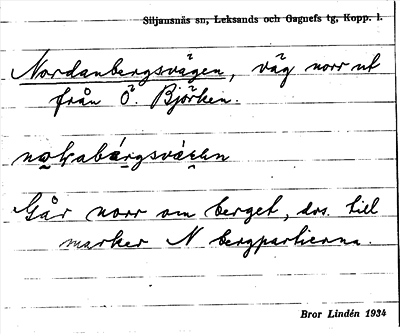 Siljansnäs sn, Leksands och Gagnefs tg, Kopp. l.
Nordanbergsvägen, väg norr ut
från Ö. Björken.
Går norr om berget, drs. till
marker N bergpartierna.
Bror Lindén 1934